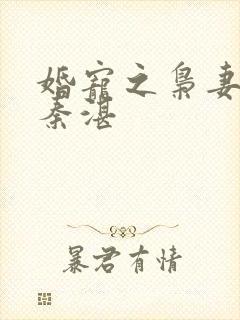 婚寵之梟妻
秦湛
暴君有情